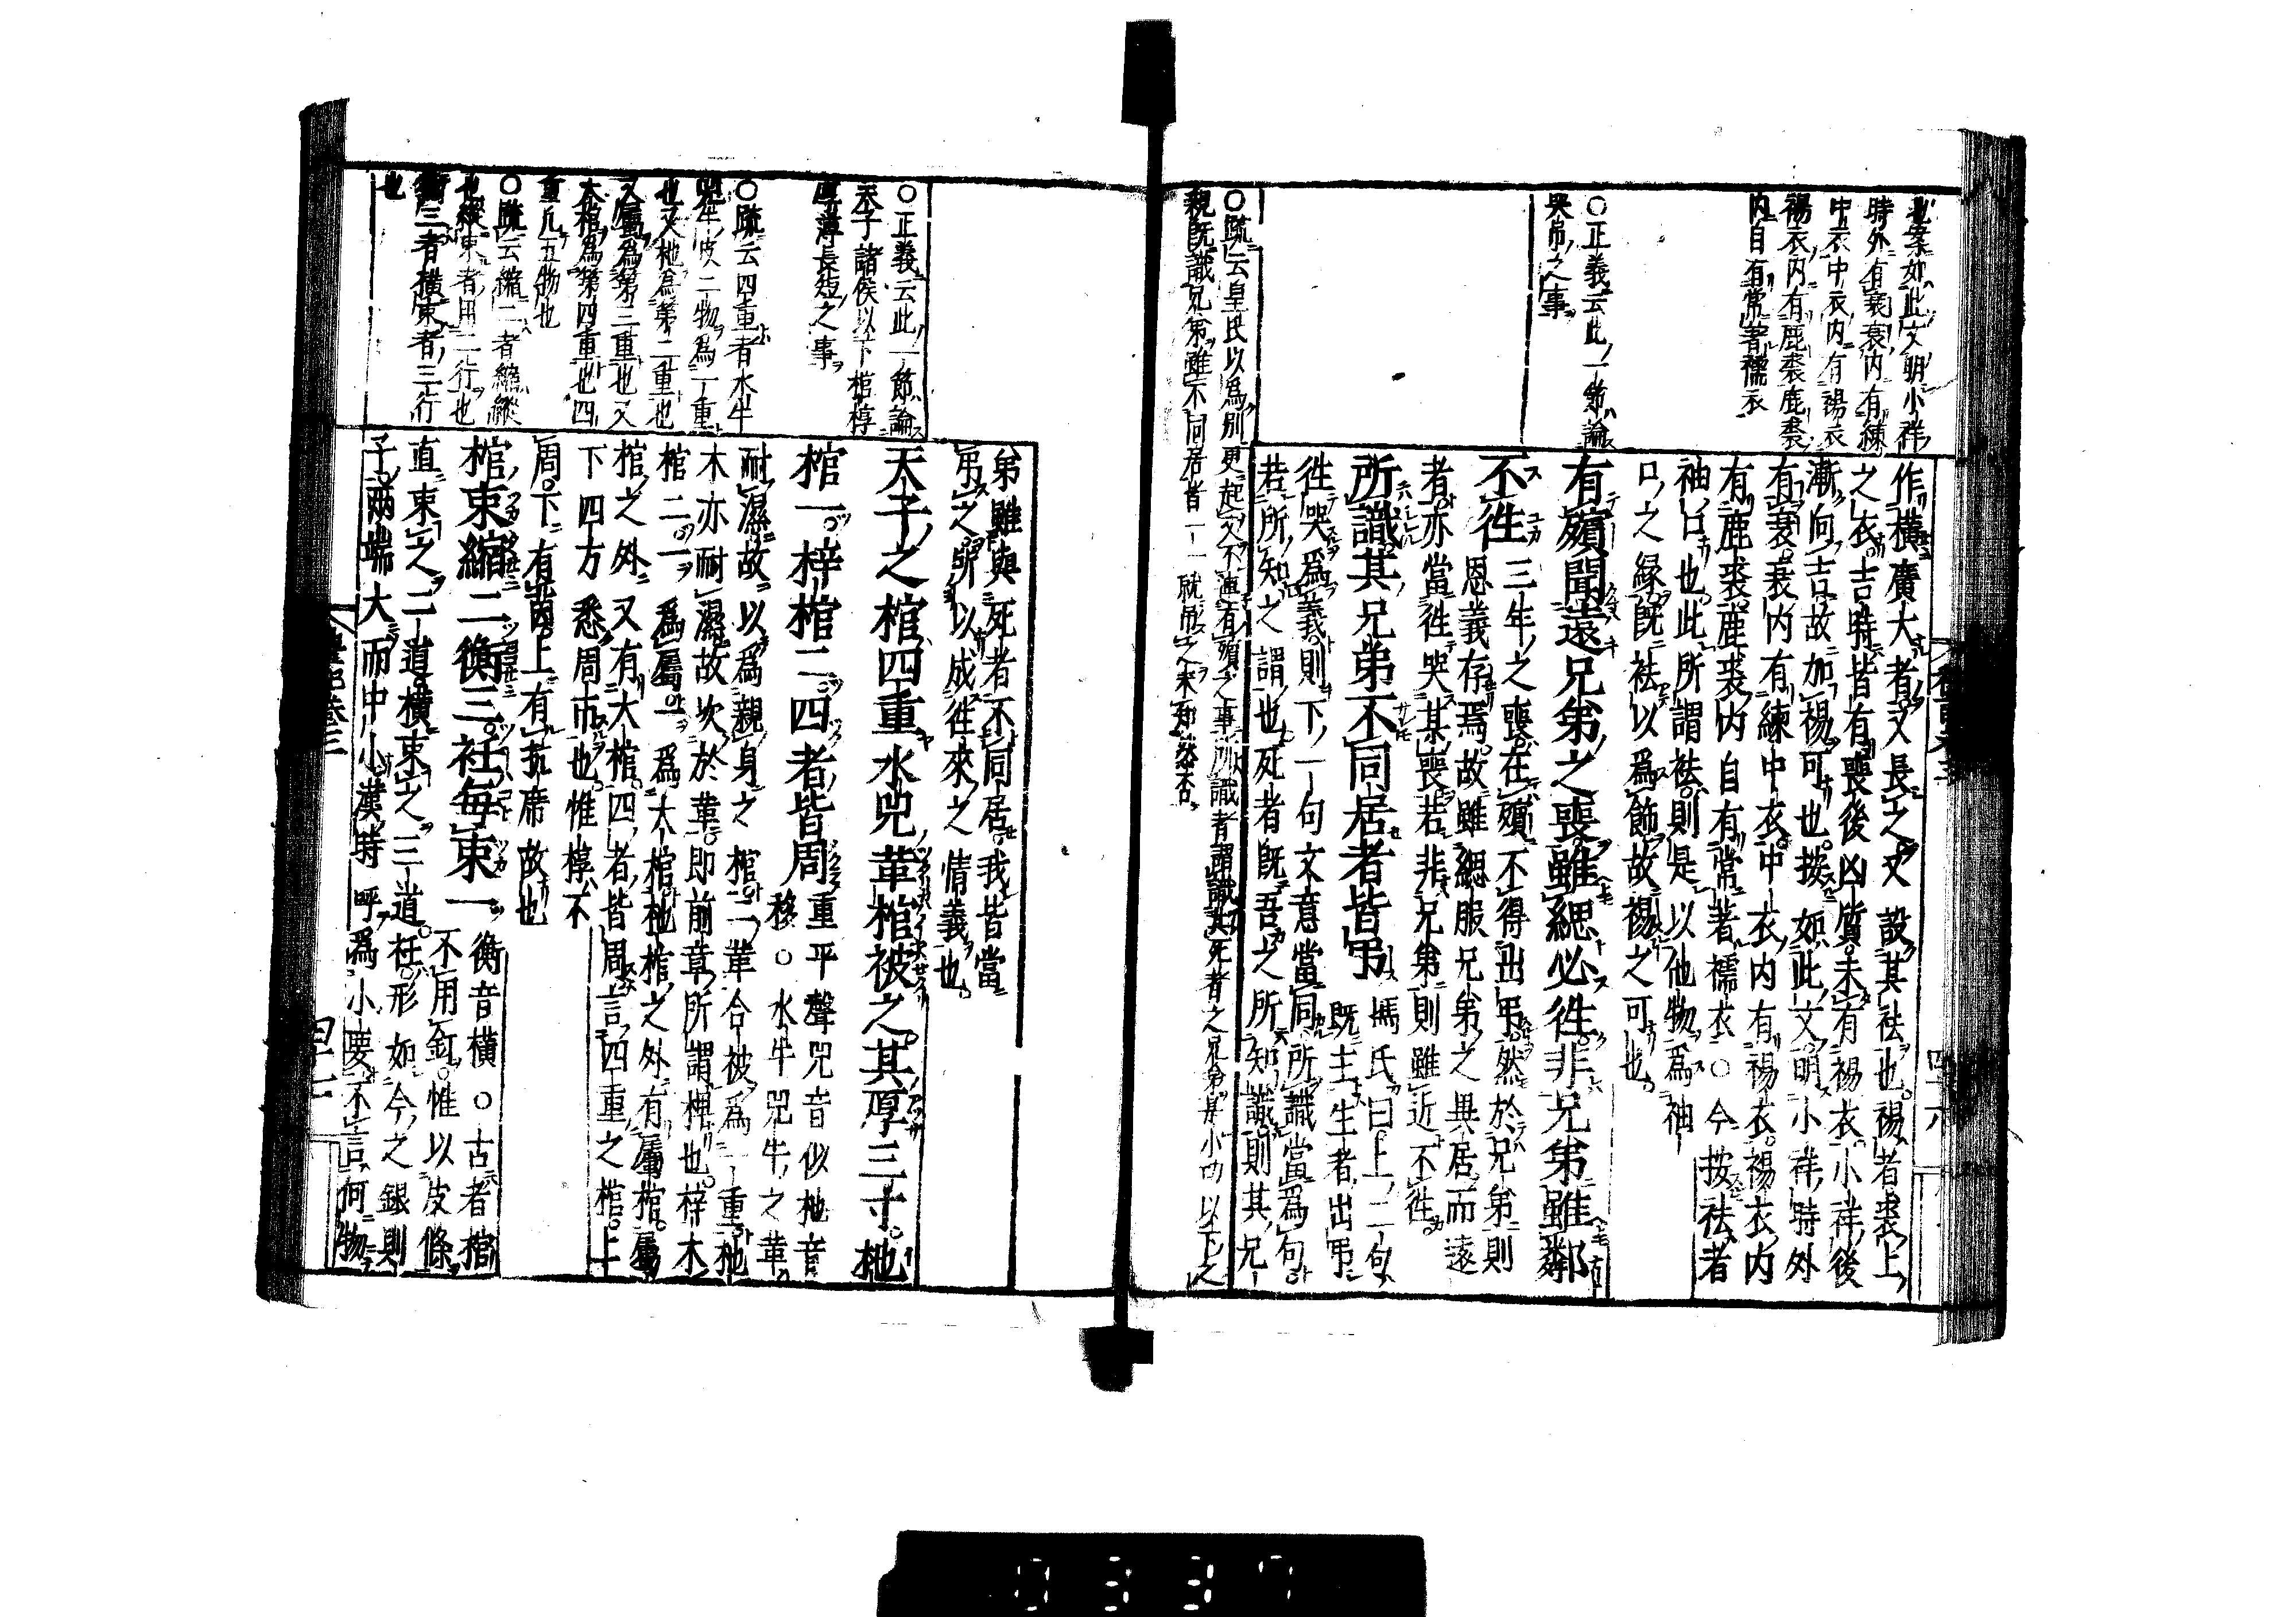 也案如此文明小祥
時外有衰衰内有練
中衣中衣内有裼衣
裼衣内有鹿裘鹿裘
内自有常著襦衣
○正義云此一節論
哭弔之事
作横廣大者又長之又設其袪也裼者裘上
之衣吉時皆有喪後凶質未有裼衣小祥後
漸向吉故加裼可也按如此文明小祥時外
有衰衰内有練中衣中衣内有裼衣裼衣内
有鹿裘鹿裘内自有常著襦衣○今按袪者
袖口也此所謂袪則是以他物爲袖
口之縁既袪以爲飾故裼之可也
有殯聞遠兄弟之喪雖緦必徃非兄弟雖鄰
不徃三年之喪在殯不得出弔然於兄弟則
恩義存焉故雖緦服兄弟之異居而遠
者亦當徃哭其喪若非兄弟則雖近不徃
所識其兄弟不同居者皆弔馮氏曰上二句
既主生者出弔
徃哭爲義則下一句文意當同所識當爲句
若所知之謂也死者既吾之所知識則其兄
○疏云皇氏以爲別更起文不連有殯之事所識者謂識其死者之兄弟是小功以下之
親既識兄弟雖不同居者一一就弔之未知然否
弟雖與死者不同居我皆當
弔之所以成徃來之情義也
○正義云此一節論
天子諸侯以下棺椁
厚薄長短之事
○疏云四重者水牛
兕牛皮二物爲一重
也又杝爲第二重也
又屬爲第三重也又
大棺爲第四重也四
重凡五物也
○疏云縮二者縮縱
也縱束者用二行也
衡三者横束者三行
也
天子之棺四重水兕革棺被之其厚三寸杝
棺一梓棺二四者皆周重平聲兕音似杝音
移○水牛兕牛之革
耐濕故以爲親身之棺二革合被爲一重杝
木亦耐濕故次於革即前章所謂椑也梓木
棺二一爲屬一爲大棺杝棺之外有屬棺屬
棺之外又有大棺四者皆周言四重之棺上
下四方悉周市也惟椁不
周下有茵上有抗席故也
棺束縮二衡三衽每束一衡音横○古者棺
不用釘惟以皮條
直束之二道横束之三道衽形如今之銀則
子兩端大而中小漢時呼爲小要不言何物
禮記卷三
四十七